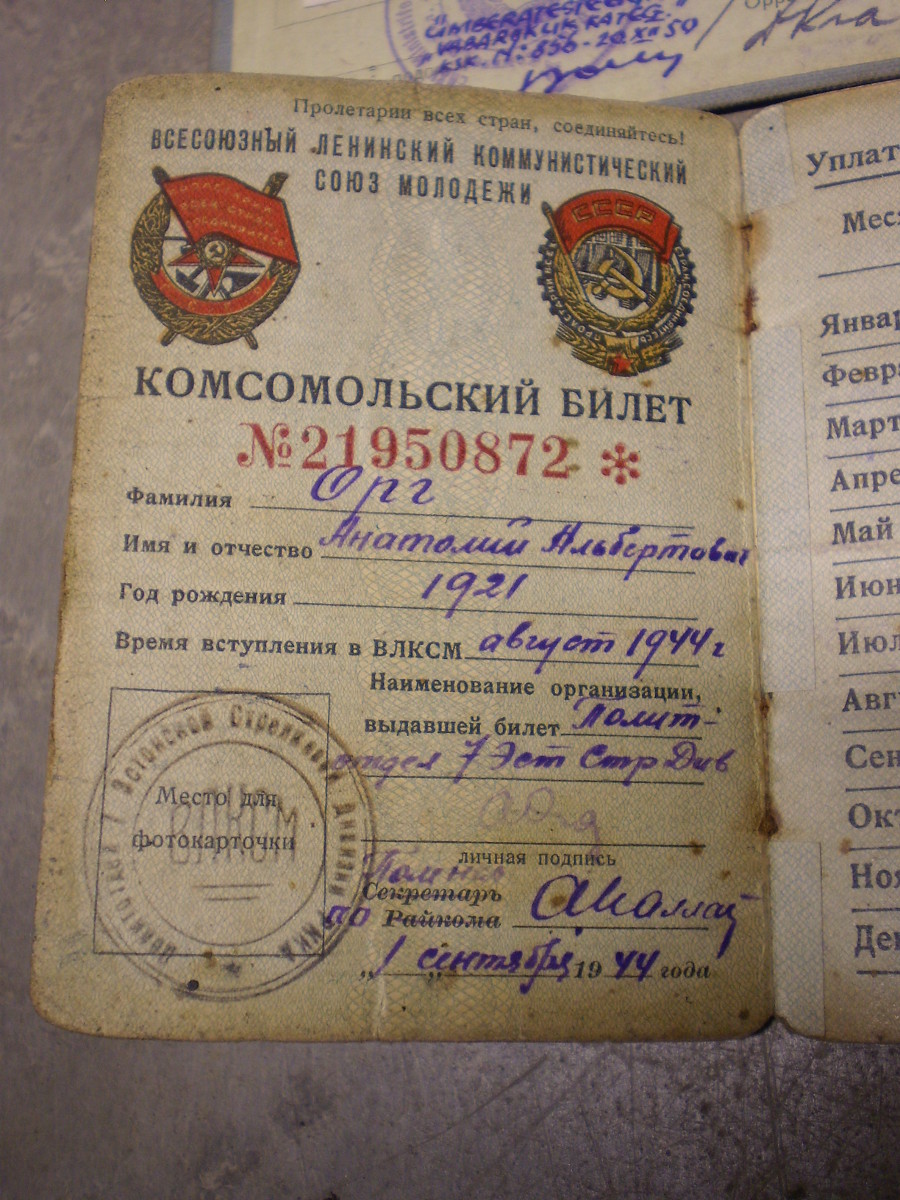 ÜMBERATESTEE
VABARIIKLIK KATES.
KSK. N: 856 - 20.XII 50
Пролетарии всех стран, соединяйтесь!
ВСЕСОЮЗНЫЙ ЛЕНИНСКИЙ КОММУНИСТИЧЕСКИЙ
СОЮЗ МОЛОДЕЖИ
СССР
КОМСОМОЛЬСКИЙ БИЛЕТ
№21950872 *
Фамилия Орг
Имя и отчество Анатолий Альбертович
Год рождения 1921
Время вступления в ВЛКСМ август 1944 г
Наименование организации,
выдавшей билет Полит-
отдел 7 Эст Стр Див
личная подпись
Секретарь
ПО Райкома
„1" сентября 1944 года
Место для
фотокарточки
ВЛКСМ
Эстонской Стрелковой Дивизии
Уплат
Меся
Январ
Февра
Март
Апре
Май
Июн
Июл
Авг
Сен
Окт
Ноя
Дек